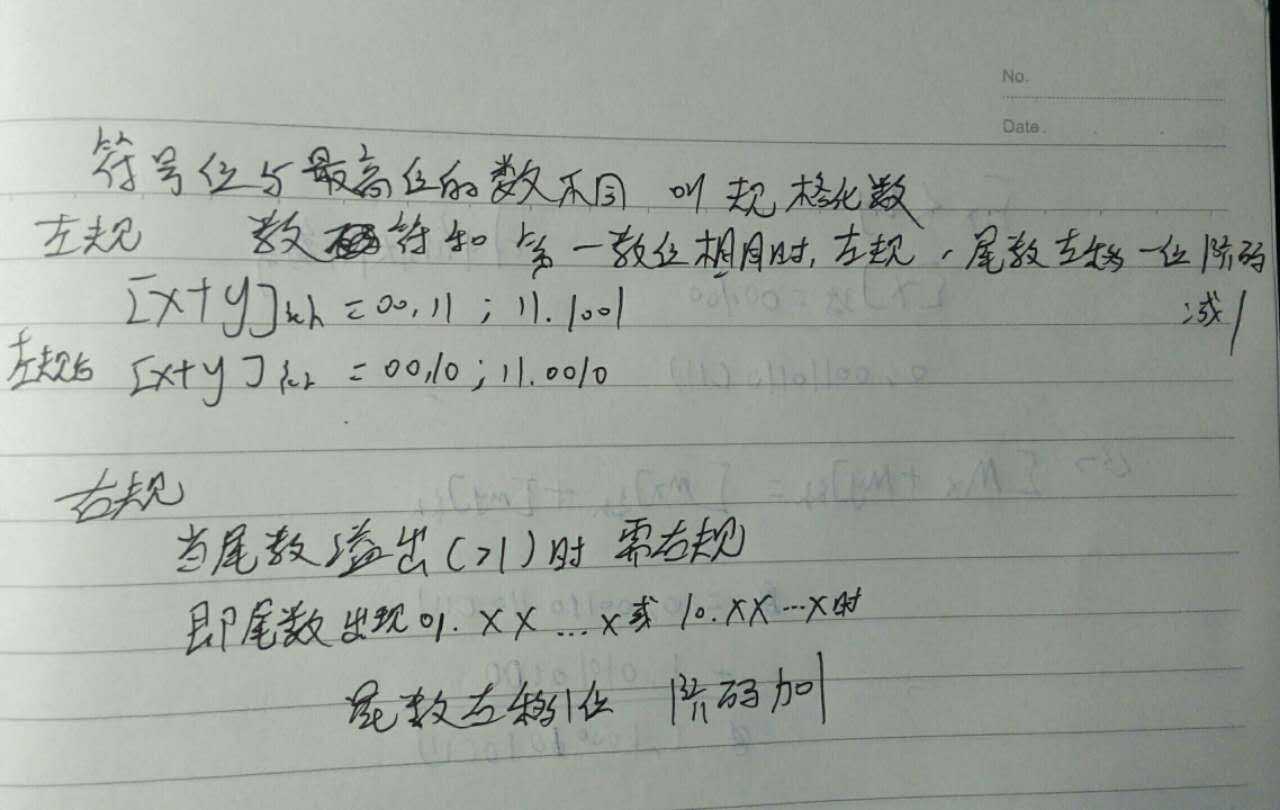 No.
Date.
符号位与最高位的数不同 叫规格化数
左规 数符和第一数位相同时, 左规, 尾数左移一位 阶码减1
[x+y]补 = 00,11; 11.1001
左规后 [x+y]补 = 00,10; 11.0010
右规
当尾数溢出(>1)时 需右规
即尾数出现01.XX...X或10.XX...X时
尾数右移1位 阶码加1